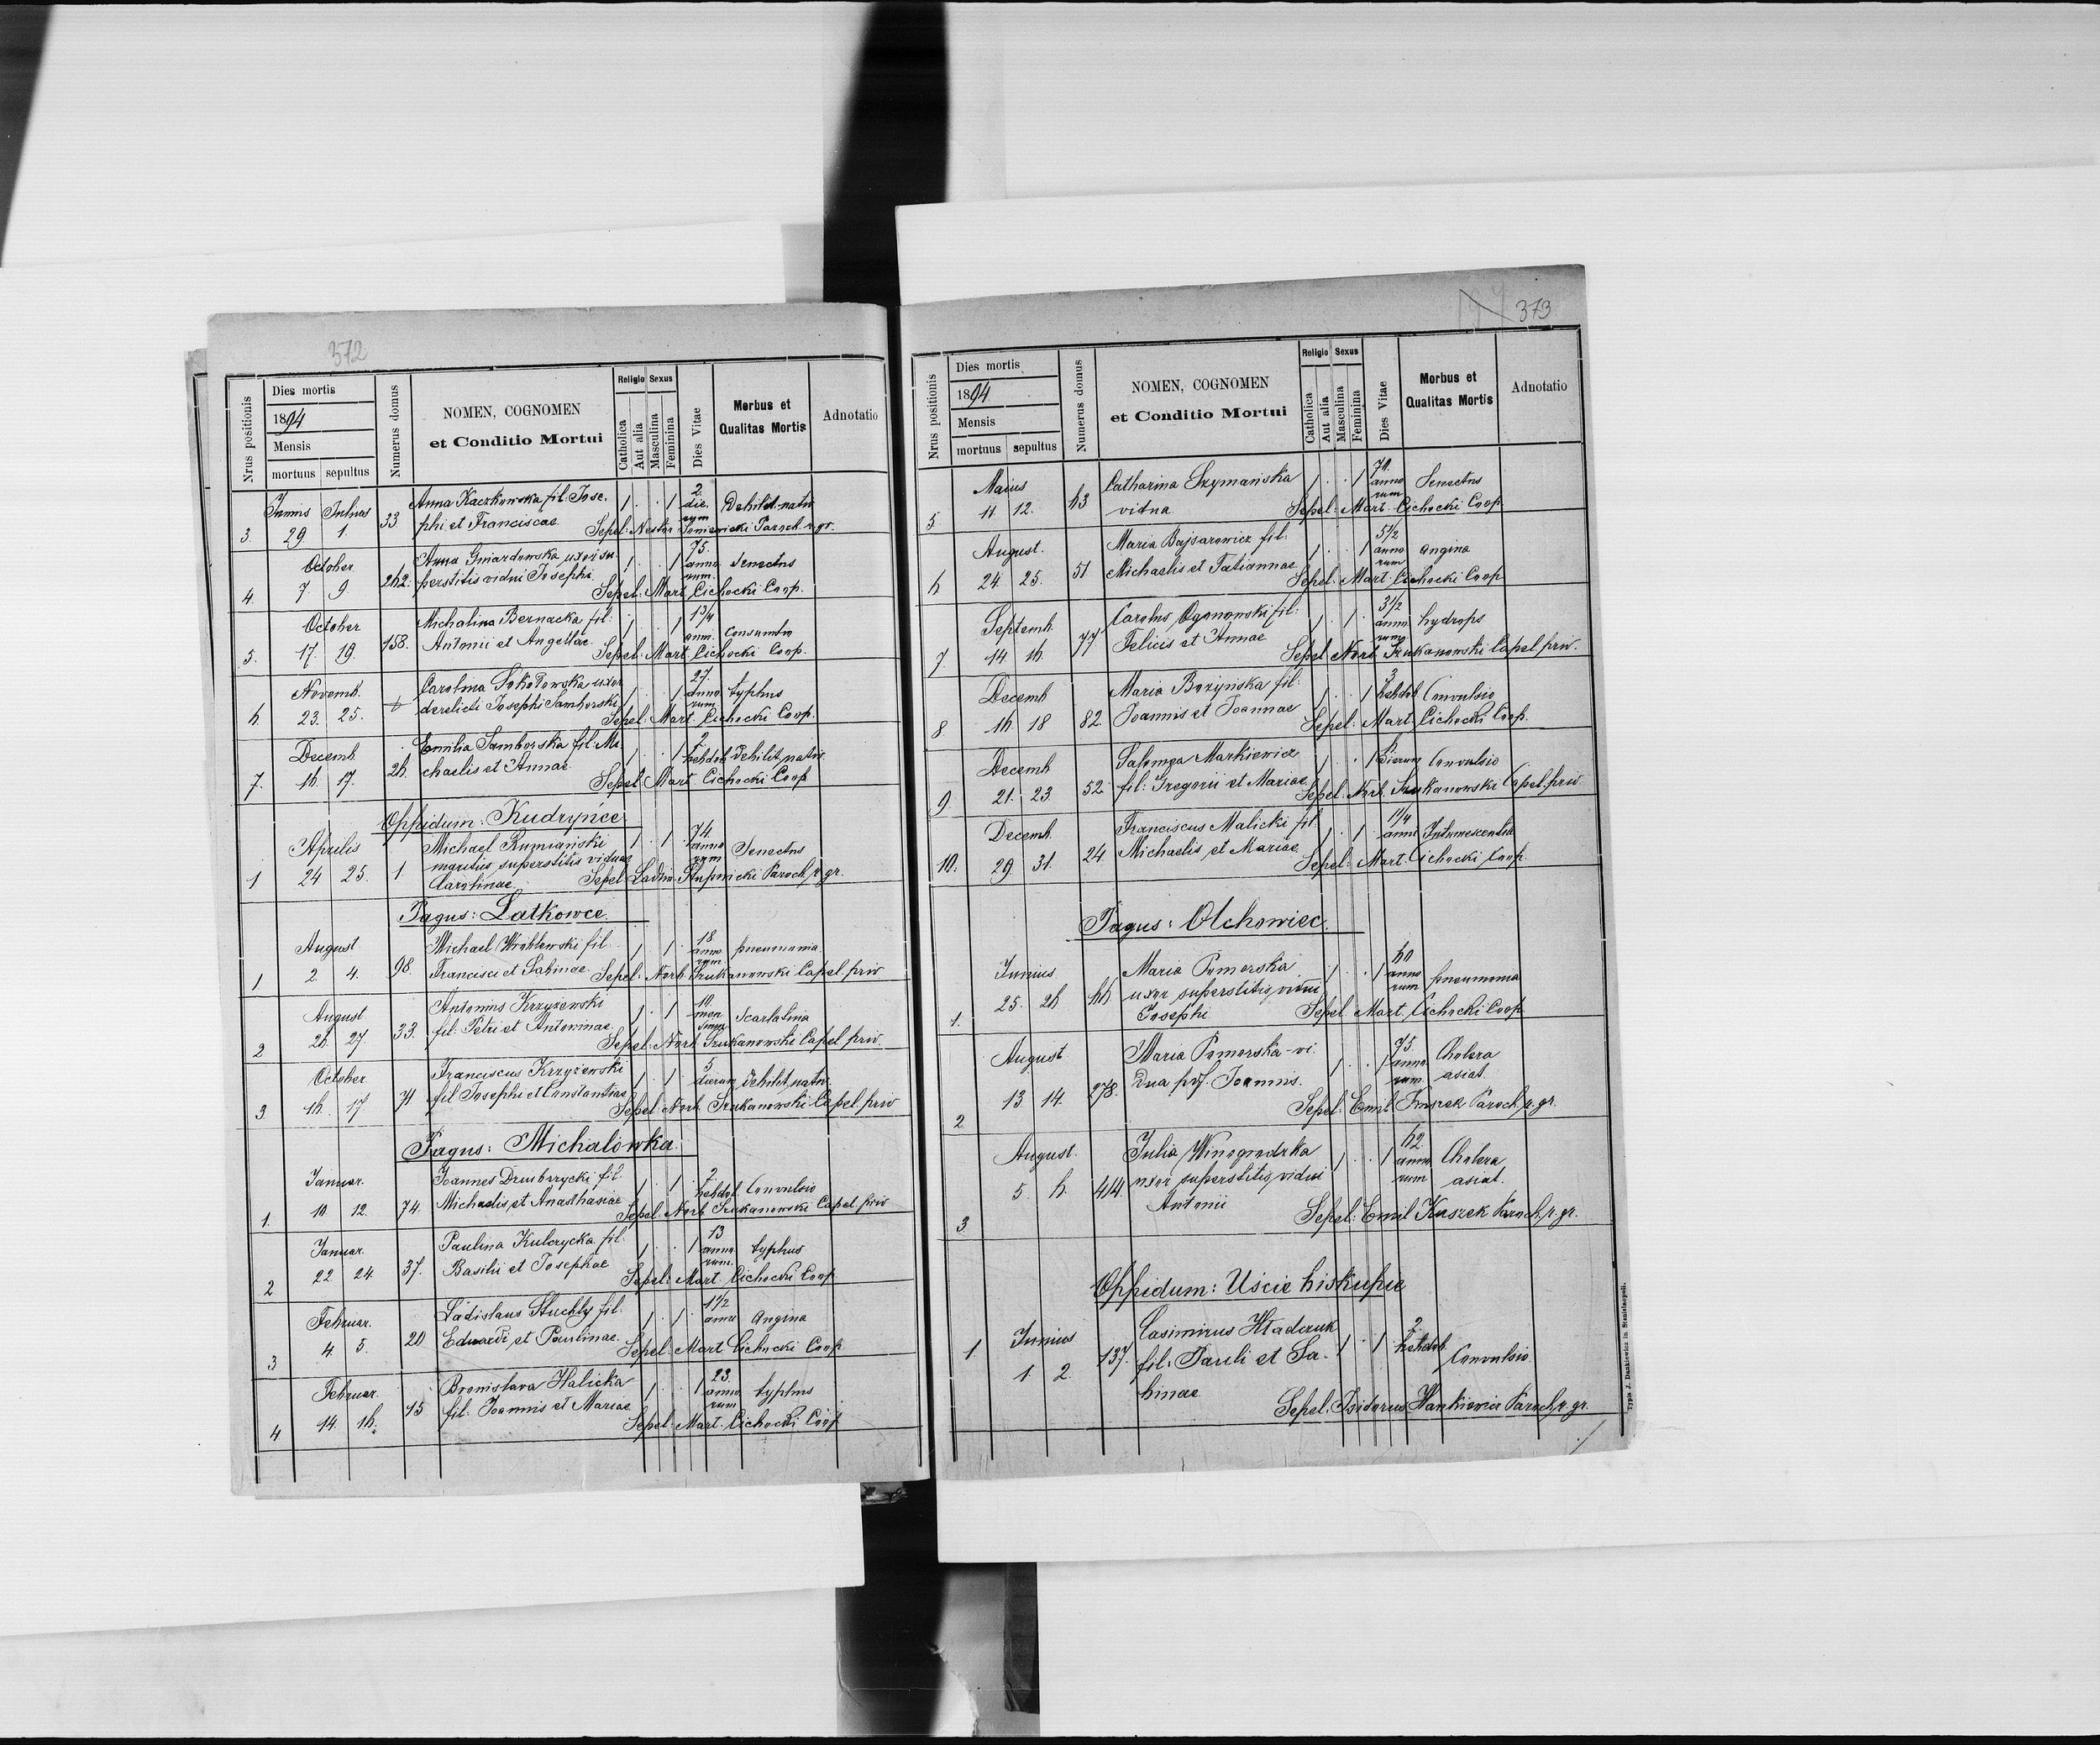 372
Nrus positionis
Dies mortis
1894
Mensis
mortuus sepultus
Numerus domus
NOMEN, COGNOMEN
et Conditio Mortui
Religio Sexus
Catholica
Aut alia
Masculina
Feminina
Dies Vitae
Morbus et
Qualitas Mortis
Adnotatio
Junius Julius Anna Kaczkowska fil. Jose- 1 . . 1 2 die- rum Debilit. nativ
3. 29 1. 33 phi et Franciscae Sepel: Nestor Paroch. r. gr.
October Anna Gwiardowska uxor su- 1 . . 1 75. anno rum. Senectus
4. 7. 9. 262. perstitis vidui Josephi Sepel: Mart. Cichocki Coop.
October Michalina Bernacka fil: 1 . . 1 1 3/4 ann. Consumtio
5. 17. 19. 158. Antonii et Angellae Sepel: Mart. Cichocki Coop.
Novemb. Carolina Sokołowska uxor 1 . . 1 27. anno rum typhus
6 23. 25. + derelicti Josephi Samborski Sepel: Mart. Cichocki Coop.
Decemb. Emilia Samborska fil. Mi- 1 . . 1 2 hebdob. debilit. nativ.
7. 16. 17. 26. chaelis et Annae Sepel: Mart. Cichocki Coop
Oppidum: Kudryńce
Aprilis Michael Rumiański 1 . 1 . 74 anno rum Senectus
1 24 25. 1 maritus superstitis viduae
Carolinae Sepel: Ladim. Slupnicki Paroch. r. gr.
Pagus: Latkowce.
August Michael Wróblewski fil. 1 . 1 . 18 anno rum pneumonia
1 2 4. 98. Francisci et Sabinae Sepel: Norb. Szukanowski Capel. priv
August Antonius Krzyżewski 1 . 1 10. men sium Scarlatina
2 26. 27. 33. fil. Petri et Antoninae Sepel: Norb. Szukanowski Capel. priv.
October Franciscus Krzyżewski 1 . 1 . 5 dierum debilit. nativ.
3 16. 17 71 fil Josephi et Constantiae Sepel: Norb. Szukanowski Capel. priv
Pagus: Michalówka.
Januar. Joannes Drubrycki fil. 1 . 1 . 2 hebdob. Convulsio
1. 10 12. 74. Michaelis et Anasthasiae Sepel: Norb. Szukanowski Capel. priv
Januar. Paulina Kulczycka fil 1 . . 1 13 anno rum. typhus
2 22 24. 37. Basilii et Josephae Sepel: Mart. Cichocki Coop
Februar. Ladislaus Stuchly fil. 1 . 1 . 1 1/2 anni Angina
3 4. 5. 20 Eduardi et Paulinae Sepel: Mart. Cichocki Coop
Februar. Bronislava Halicka 1 . . 1 23. anno rum typhus
4 14 16. 15 fil. Joannis et Mariae Sepel: Mart. Cichocki Coop
373
Nrus positionis
Dies mortis
1894
Mensis
mortuus sepultus
Numerus domus
NOMEN, COGNOMEN
et Conditio Mortui
Religio Sexus
Catholica
Aut alia
Masculina
Feminina
Dies Vitae
Morbus et
Qualitas Mortis
Adnotatio
Maius Catharina Szymańska 1 . . 1 70. anno rum Senectus
5 11 12. 63 vidua Sepel: Mart. Cichocki Coop.
August. Maria Bajsarowicz fil: 1 . . 1 5 1/2 anno rum angina
6 24 25. 51 Michaelis et Tatiannae Sepel: Mart. Cichocki Coop
Septemb. Carolus Ogonowski fil: 1 . 1 . 3 1/2 anno rum hydrops
7. 14 16. 77 Felicis et Annae Sepel: Norb. Szukanowski Capel. priv.
Decemb Maria Bożyńska fil: 1 . . 1 3 hebdob. Convulsio
8 16. 18 82 Joannis et Joannae Sepel: Mart. Cichocki Coop.
Decemb Salomea Markiewicz 1 . . 1 dierum Convulsio
9. 21. 23. 52 fil: Gregorii et Mariae Sepel: Norb. Szukanowski Capel. priv
Decemb. Franciscus Malicki fil 1 . 1 . 1 1/4 anni Intumescentia
10. 29. 31 24 Michaelis et Mariae Sepel: Mart. Cichocki Coop.
Pagus: Olchowiec.
Junius Maria Pomorska 1 . . 1 60 anno rum pneumonia
1. 25. 26 66 uxor superstitis vidui
Josephi Sepel: Mart. Cichocki Coop
August Maria Pomorska vi- 1 . . 1 75. anno rum Cholera
2 13. 14. 278. dua pof. Joannis. asiat.
Sepel: Emil Paroch. r. gr.
August. Julia Winogrodzka 1 . . 1 62. anno rum Cholera
3 5. 6. 414. uxor superstitis vidui asiat.
Antonii Sepel: Emil Kuszek Paroch. r. gr.
Oppidum: Uście biskupie
1 Junius Casimirus Hładczuk 1 . 1 2 hebdob. Convulsio.
1 2. 137. fil. Pauli et Sa-
binae
Sepel: Isidorus Hankiewicz Paroch. r. gr.
Typis J. Dankiewicz in Stanislaopoli.